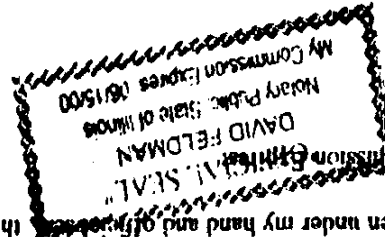 en under my hand and official
mission
"OFFICIAL SEAL"
DAVID FELDMAN
Notary Public, State of Illinois
My Commission Expires 06/15/00